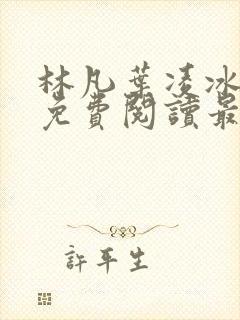 林凡葉凌冰
免費閱讀最
許平生